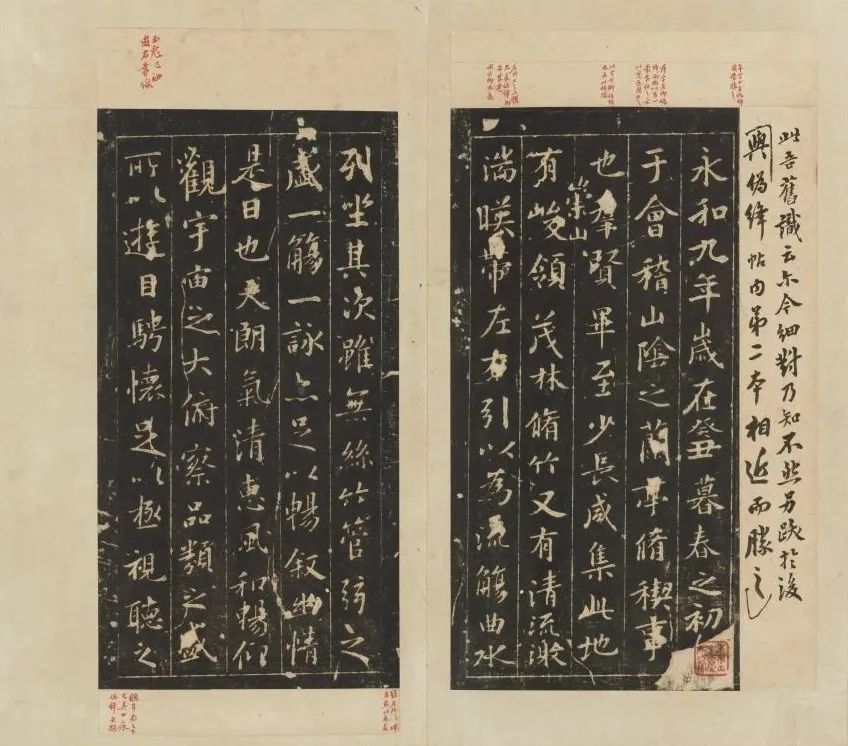 此吾舊識云尔今細對乃知不然另跋於後
與偽絳帖內弟二本相近而勝之
永和九年歲在癸丑暮春之初
于會稽山陰之蘭亭脩稧事
也羣賢畢至少長咸集此地
崇山
有峻領茂林脩竹又有清流激
湍暎帶左右引以為流觴曲水
列坐其次雖無絲竹管弦之
盛一觴一詠亦足以暢敘幽情
是日也天朗氣清惠風和暢仰
觀宇宙之大俯察品類之盛
所以遊目騁懷足以極視聽之